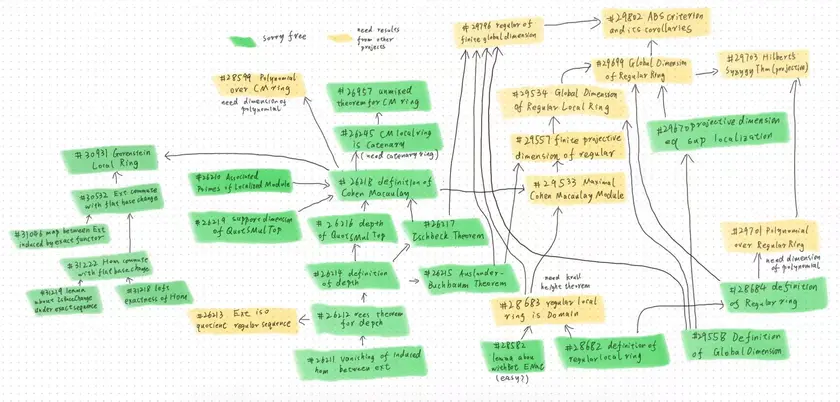 sorry free
need results
from other
projects
#29796 regular of
finite global dimension
#29802 ABS criterion
and its corollaries
#28599 Polynomial
over CM ring
need dimension of
polynomial
#26957 unmixed
theorem for CM ring
#29699 Global Dimension
of Regular Ring
#29703 Hilbert's
Syzygy Thm (projective)
#29534 Global Dimension
of Regular Local Ring
#26245 CM local ring
is Catenary
(need catenary ring)
#29557 finite projective
dimension of regular
projective dimension
of sup localization
#30931 Gorenstein
Local Ring
Associated
Primes of Localized Module
#26218 definition of
Cohen Macaulay
#29533 Maximal
Cohen Macaulay Module
Ext commute
with flat base change
#26219 support dimension
of QuotSMulTop
#26216 depth
of QuotSMulTop
#26217
Ischbeck Theorem
#29701 Polynomial
over Regular Ring
need dimension
of polynomial
#31046 map between Ext
induced by exact functor
#31222 Hom commute
with flat base change
#26214 definition
of depth
#26215 Auslander-
Buchbaum Theorem
need krull
height theorem
#28683 regular local
ring is Domain
#28684 definition
of Regular ring
#31219 lemma
about
under exact sequence
#31218 left
exactness of Hom
#26213 Ext iso
quotient regular sequence
#26212 rees theorem
for depth
#26211 vanishing of induced
hom between ext
#28582
lemma about
withBot ENat
(easy?)
#28682 definition of
regular local ring
#29558 Definition
of Global Dimension